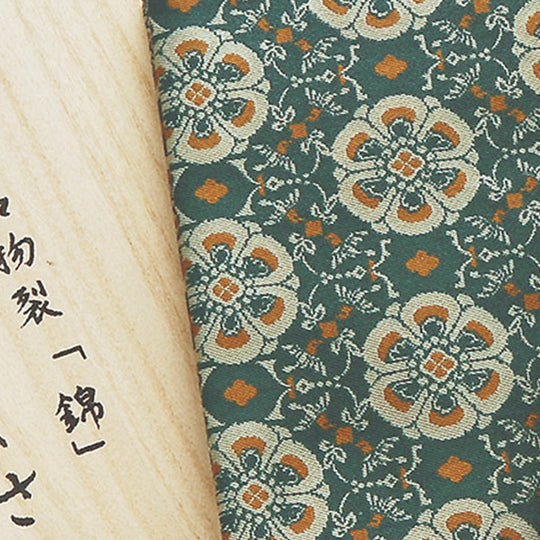 物裂「錦」
さ